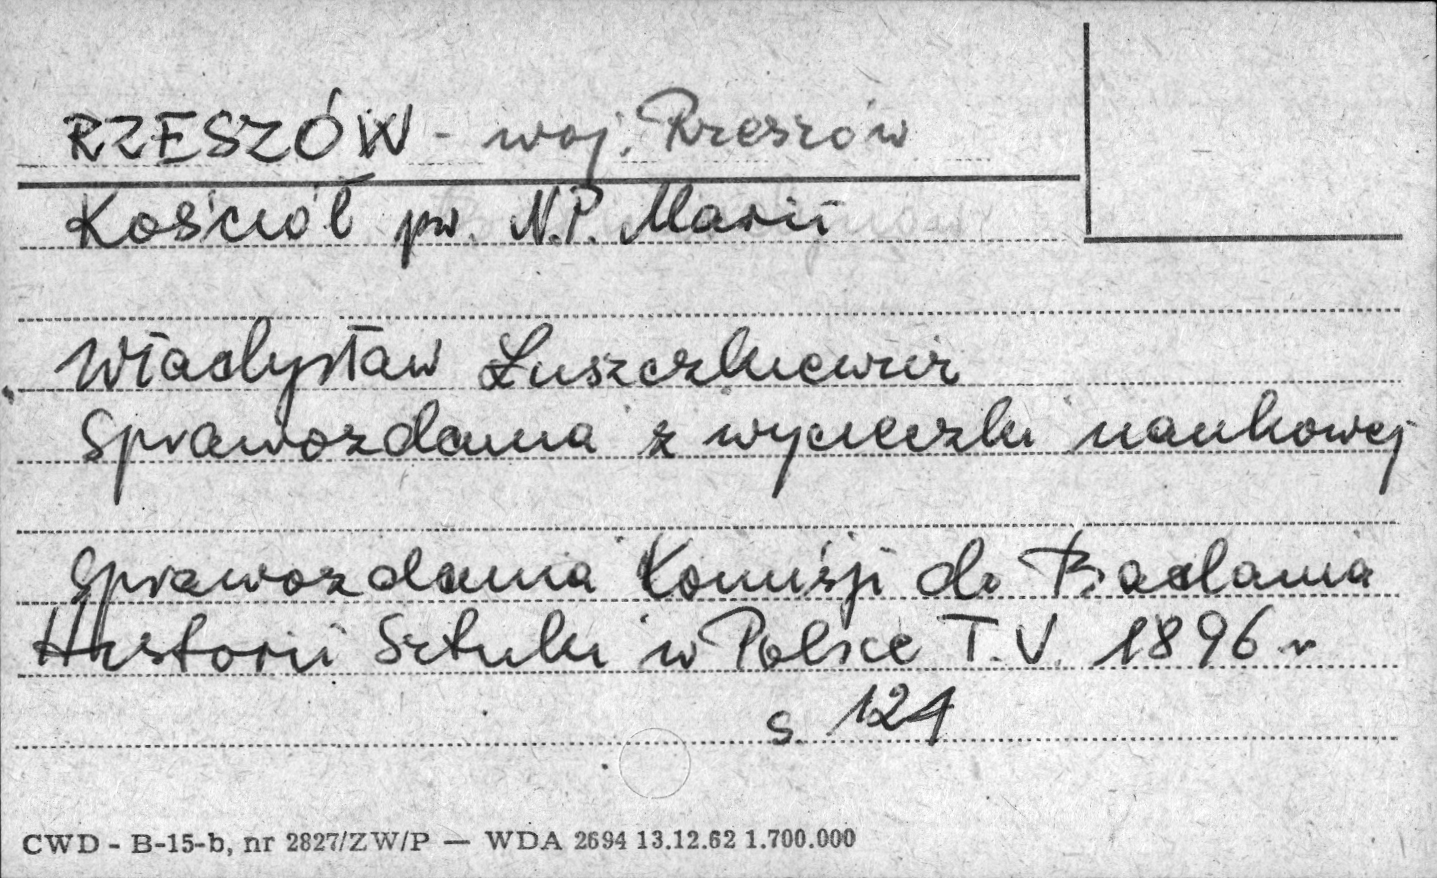 RZESZÓW - woj. Rzeszów
Kościół pw. N.P. Marii
Władysław Łuszczkiewicz
Sprawozdania z wycieczki naukowej
Sprawozdania Komisji do Badania
Historii Sztuki w Polsce T.V. 1896 r
s. 124
CWD - B-15-b, nr 2827/ZW/P — WDA 2694 13.12.62 1.700.000